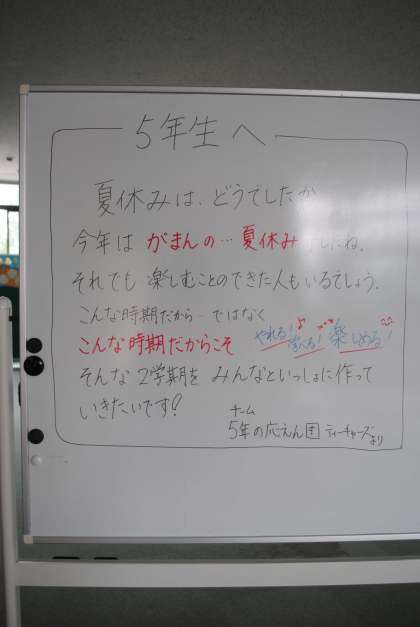 5年生へ
夏休みは、どうでしたか
今年は がまんの… 夏休みでしたね。
それでも 楽しむことのできた人もいるでしょう。
こんな時期だから… ではなく
こんな時期だからこそ やれる！学べる！楽しめる！
そんな 2学期を みんなといっしょに作って
いきたいです！
チーム
5年の応えん団 ティーチャーズより